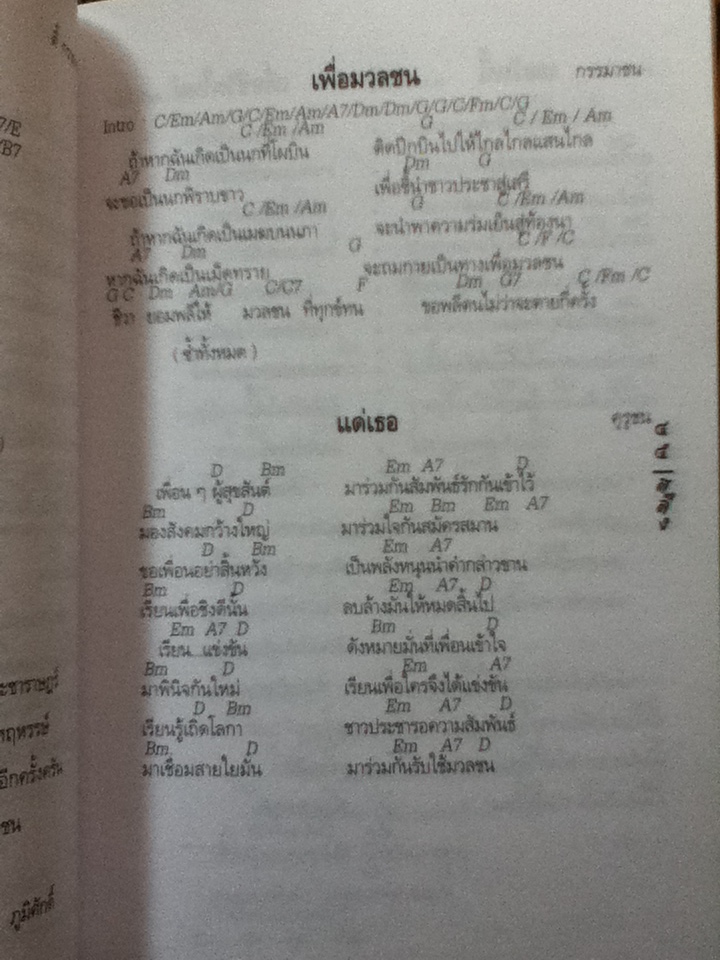 เพื่อมวลชน กรรมาชน
Intro C/Em/Am/G/C/Em/Am/A7/Dm/Dm/G/G/C/Fm/C/G
C /Em /Am G C / Em / Am
ถ้าหากฉันเกิดเป็นนกที่โผบิน ติดปีกบินไปให้ไกลไกลแสนไกล
A7 Dm Dm G
จะขอเป็นนกพิราบขาว เพื่อชี้นำชาวประชาสู่เสรี
C /Em /Am G C /Em /Am
ถ้าหากฉันเกิดเป็นเมฆบนนภา จะนำพาความร่มเย็นสู่ท้องนา
A7 Dm G C /F /C
หากฉันเกิดเป็นเม็ดทราย จะถมกายเป็นทางเพื่อมวลชน
G C Dm Am/G C/C7 F Dm G7 C /Fm /C
ชีวา ยอมพลีให้ มวลชน ที่ทุกข์ทน ขอพลีตนไม่ว่าจะตายกี่ครั้ง
( ซ้ำทั้งหมด )
แด่เธอ คุรุชน
D Bm Em A7 D
เพื่อน ๆ ผู้สุขสันต์ มาร่วมกันสัมพันธ์รักกันเข้าไว้
Bm D Em Bm Em A7
มองสังคมกว้างใหญ่ มาร่วมใจกันสมัครสมาน
D Bm Em A7
ขอเพื่อนอย่าสิ้นหวัง เป็นพลังหนุนนำคำกล่าวขาน
Bm D Em A7 D
เรียนเพื่อชิงดีนั้น ลบล้างมันให้หมดสิ้นไป
Em A7 D Bm D
เรียน... แข่งขัน ดังหมายมั่นที่เพื่อนเข้าใจ
Bm D Em A7
มาพินิจกันใหม่ เรียนเพื่อใครจึงได้แข่งขัน
D Bm Em A7 D
เรียนรู้เถิดโลกา ชาวประชารอความสัมพันธ์
Bm D Em A7 D
มาเชื่อมสายใยมั่น มาร่วมกันรับใช้มวลชน
๔๕
7/E
/B7
ะชาราษฎร์
อีกครั้งครัน
ชน
ภูมิศักดิ์